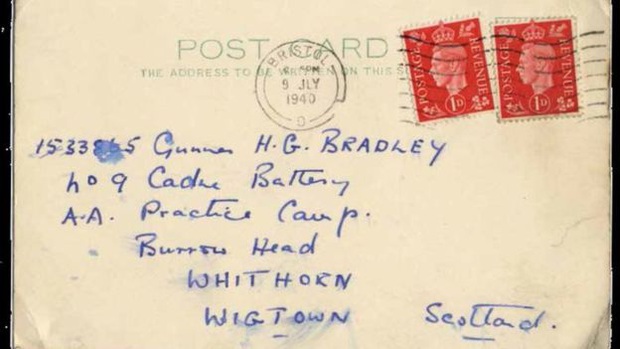 POST CARD
THE ADDRESS TO BE WRITTEN ON THIS
BRISTOL
PM
9 JLY
1940
9
POSTAGE REVENUE
1D
POSTAGE REVENUE
1D
Gunner H.G. BRADLEY
No 9 Cadre Battery
A.A. Practice Camp.
Burrow Head
WHITHORN
WIGTOWN Scotland.